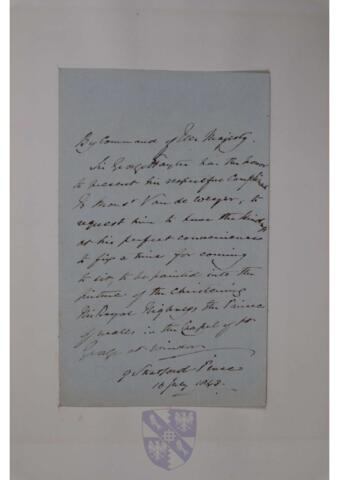 By Command of Her Majesty.
Sir George Hayter has the honor
to present his respectful Compliments
to Monsr Van de Weyer, to
request him to have the kindness
at his perfect convenience
to fix a time for coming
to sit, to be painted into the
picture of the Christening
His Royal Highness the Prince
of Wales in the Chapel of St
George at Windsor
9 Stratford Place
16 July 1843.